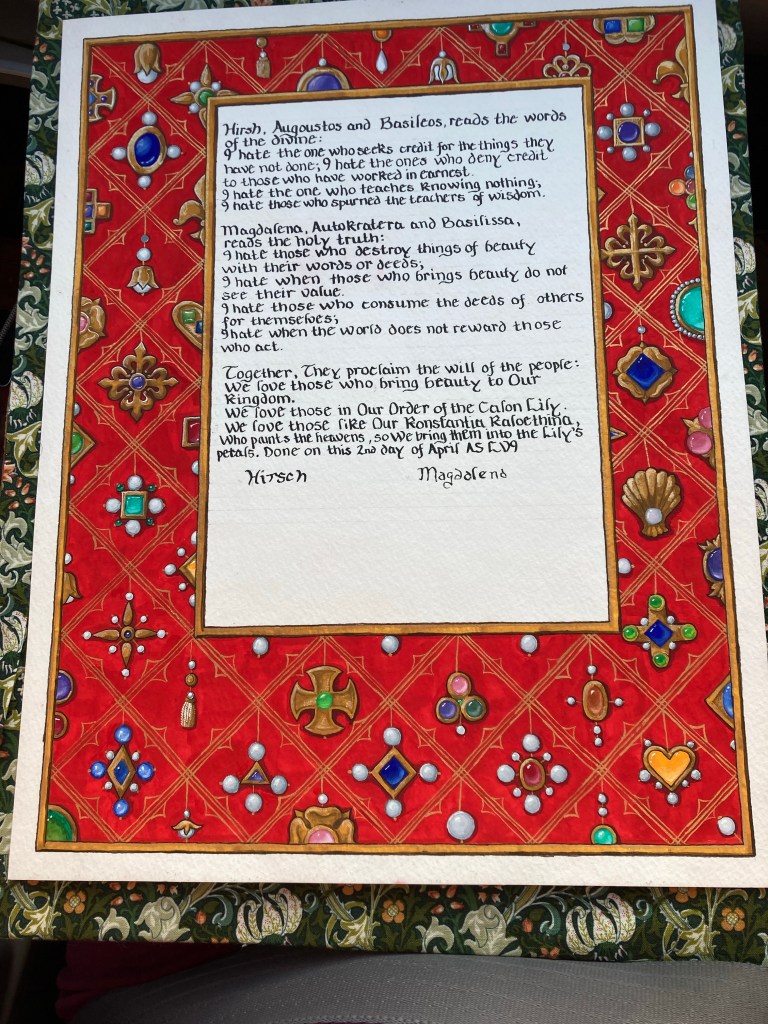 Hirsh, Augoustos and Basileos, reads the words
of the divine:
I hate the one who seeks credit for the things they
have not done; I hate the ones who deny credit
to those who have worked in earnest.
I hate the one who teaches knowing nothing;
I hate those who spurned the teachers of wisdom.
Magdalena, Autokratera and Basilissa,
reads the holy truth:
I hate those who destroy things of beauty
with their words or deeds;
I hate when those who brings beauty do not
see their value.
I hate those who consume the deeds of others
for themselves;
I hate when the world does not reward those
who act.
Together, They proclaim the will of the people:
We love those who bring beauty to Our
Kingdom.
We love those in Our Order of the Calon Lily.
We love those like Our Konstantia Kaloethina,
who paints the heavens, so We bring them into the Lily's
petals. Done on this 2nd day of April AS LV9
Hirsch Magdalena